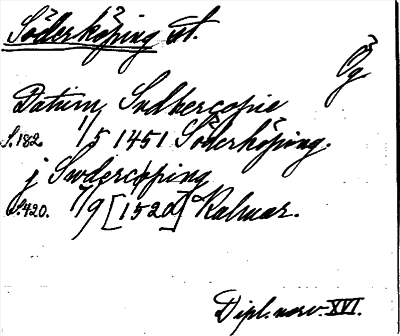 Söderköping st.
Ög.
Datum, Sudhercopie
S. 182. 1/5 1451 Söderköping.
j Sudercoping
S. 420. 17/9 [1520] Kalmar.
Dipl. norv. XVI.